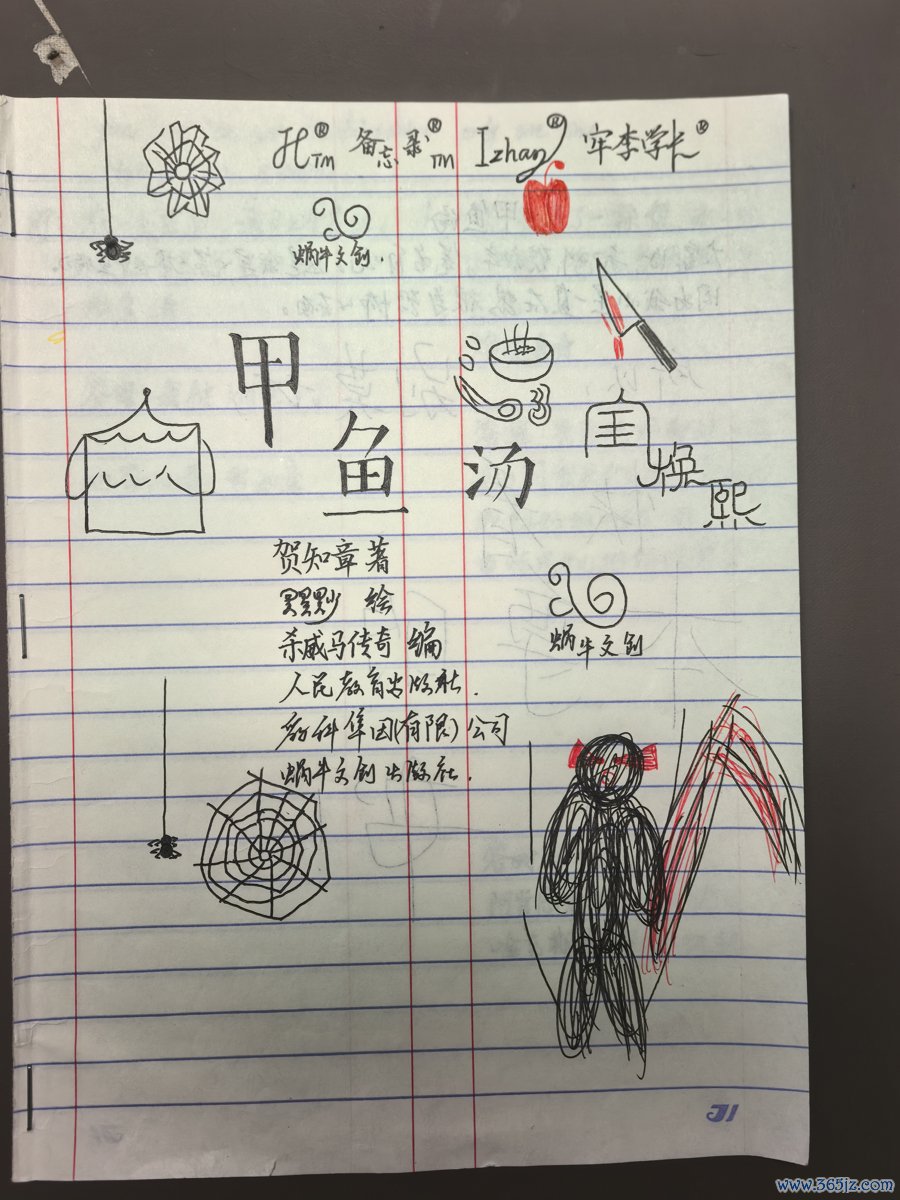 TM 备忘录® TM Izhang® 牢李学长®
蜗牛文创.
甲鱼汤
换熙
贺知章 著
绘
杀威马传奇 编
人民教育出版社.
教科集团(有限)公司
蜗牛文创出版社.
蜗牛文创
J1
www.365jz.com